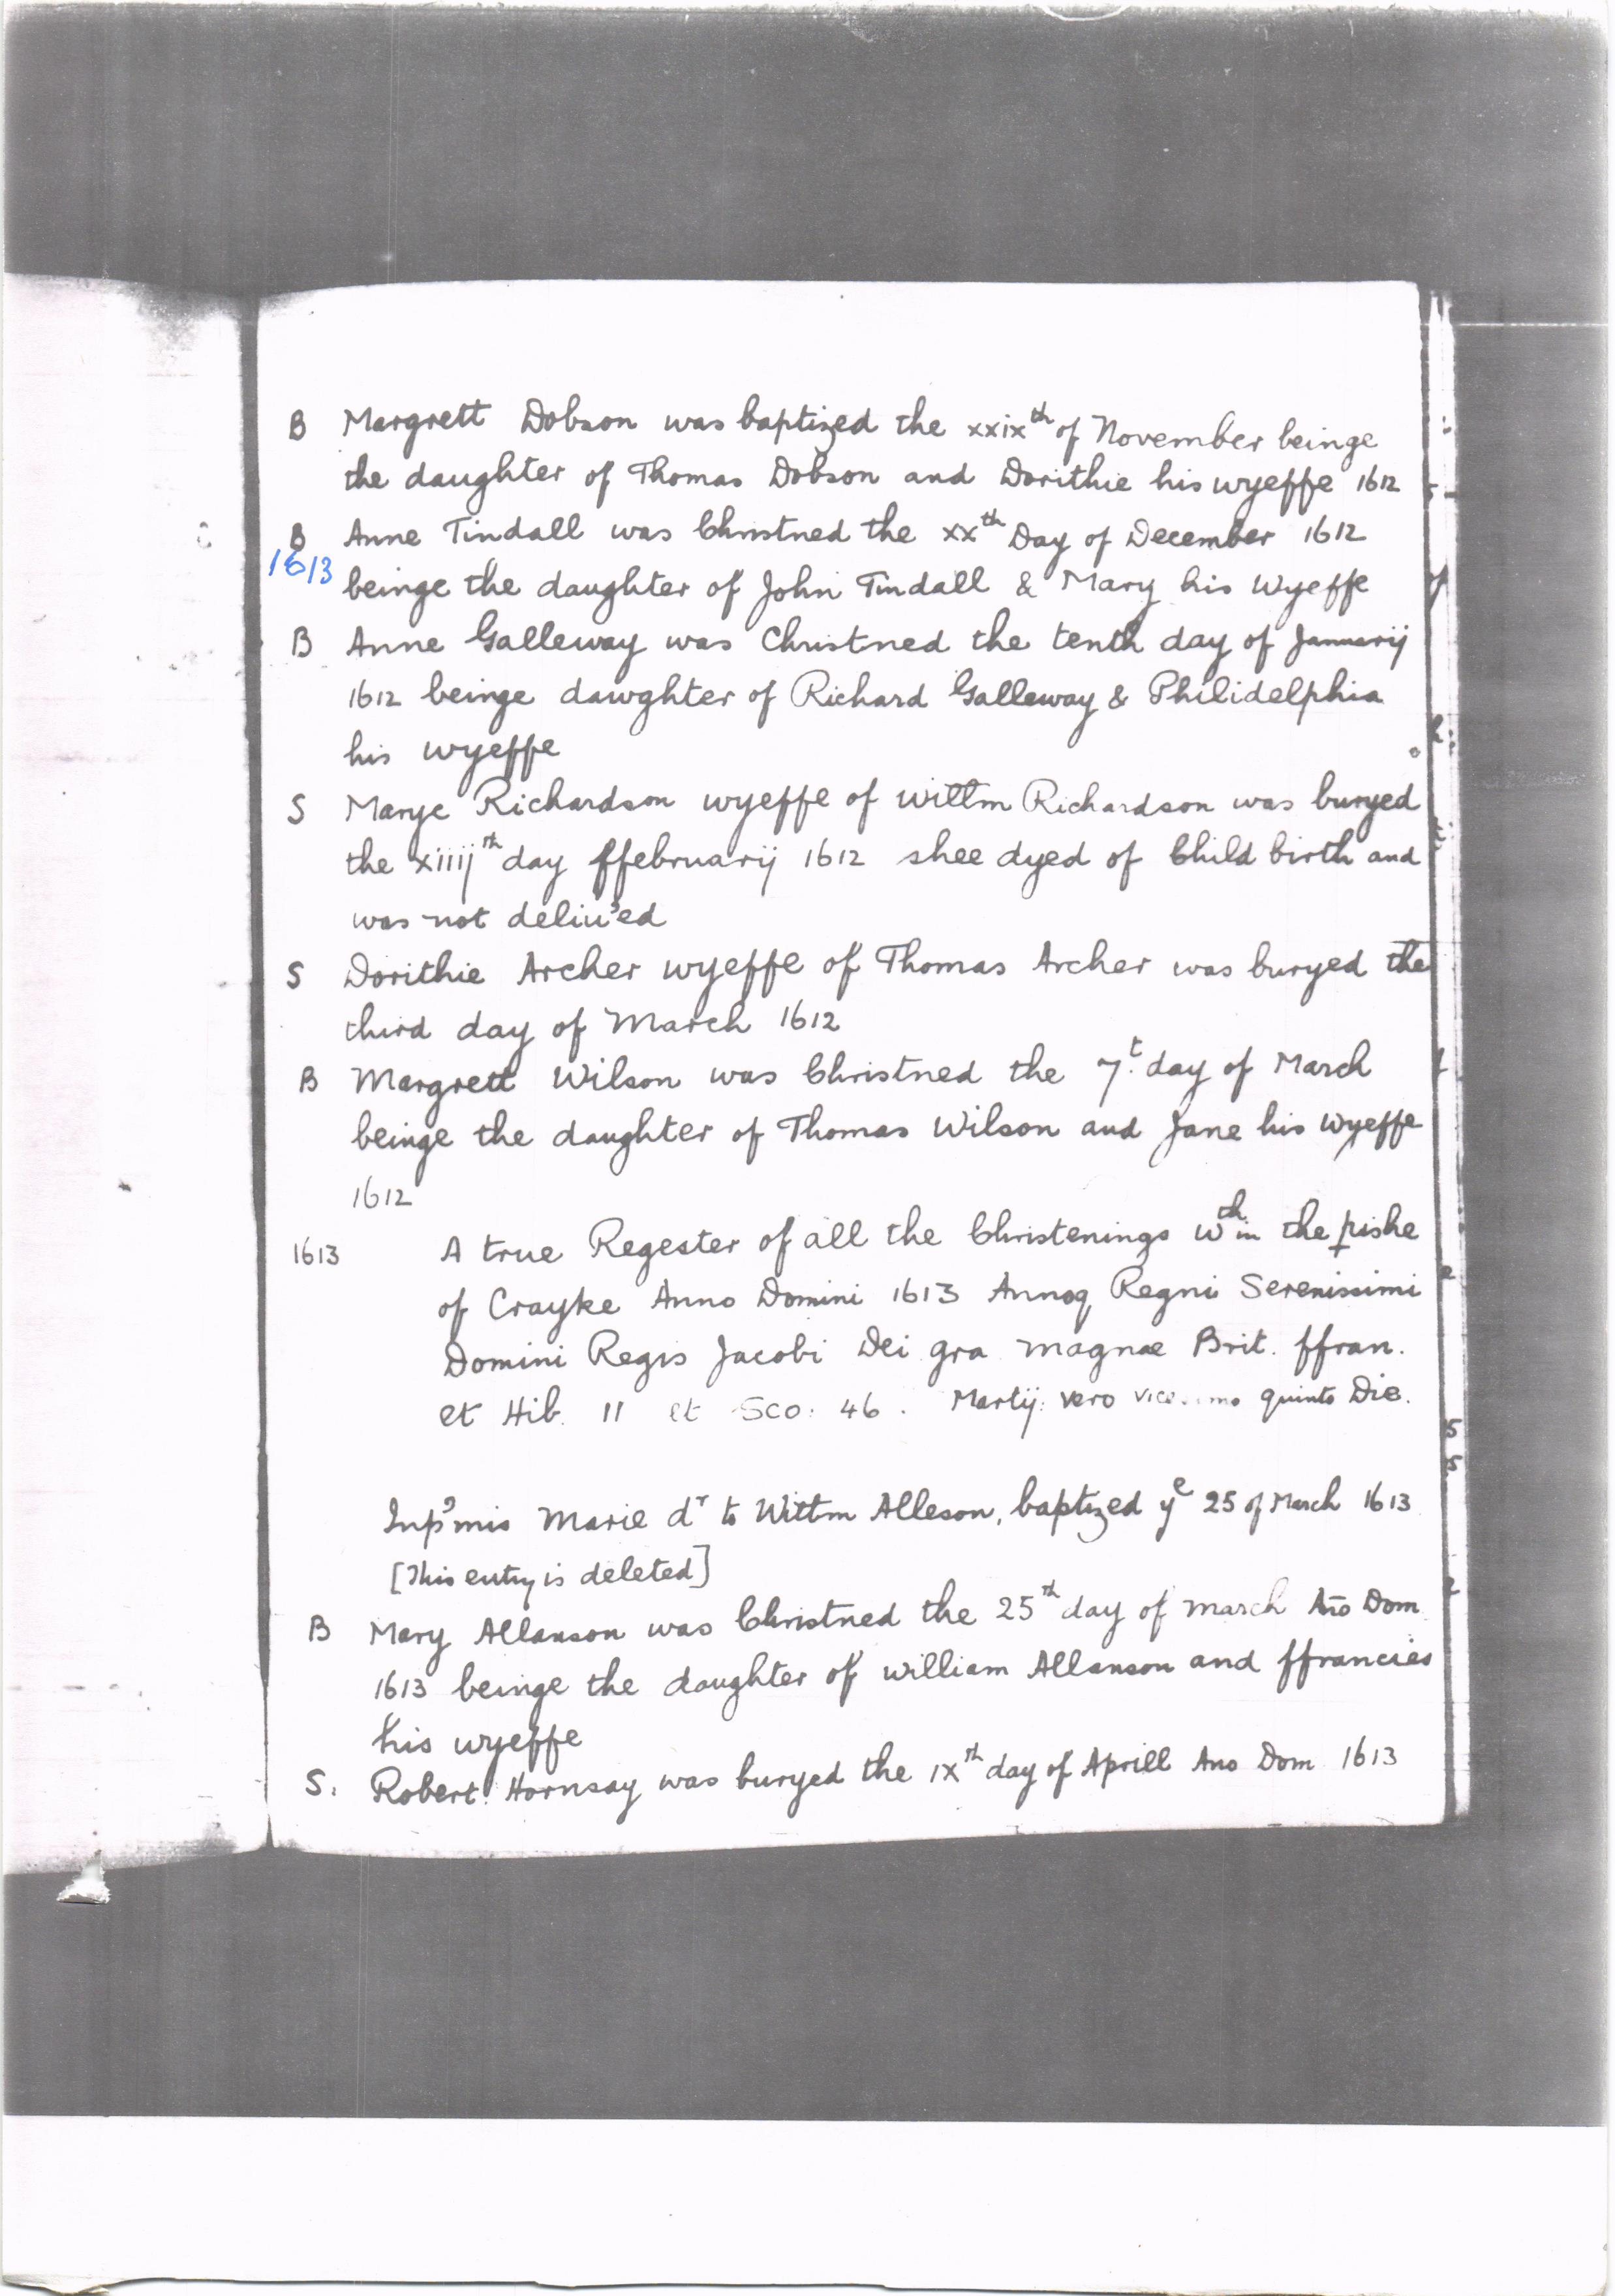 B Margrett Dobson was baptized the xxix th of November beinge
the daughter of Thomas Dobson and Dorithie his wyeffe 1612
B Anne Tindall was Christned the xx th Day of December 1612
1613 beinge the daughter of John Tindall & Mary his Wyeffe
B Anne Galleway was Christned the tenth day of Januarij
1612 beinge dawghter of Richard Galleway & Philidelphia
his wyeffe
S Marye Richardson wyeffe of Willm Richardson was buryed
the xiiij th day ffebruarij 1612 shee dyed of Child birth and
was not deliu'ed
S Dorithie Archer wyeffe of Thomas Archer was buryed the
third day of March 1612
B Margrett Wilson was Christned the 7.t day of March
beinge the daughter of Thomas Wilson and Jane his Wyeffe
1612
1613 A true Regester of all the Christenings w th in the pishe
of Crayke Anno Domini 1613 Annoq Regni Serenissimi
Domini Regis Jacobi Dei gra magnae Brit. ffran.
et Hib. 11 et Sco: 46. Martij vero quinto Die.
Inp'mis Marie d r to Willm Alleson, baptized y e 25 of March 1613
[This entry is deleted]
B Mary Allanson was Christned the 25 th day of march Ano Dom
1613 beinge the daughter of william Allanson and ffrancies
his wyeffe
S. Robert Hornsay was buryed the ix th day of Aprill Ano Dom 1613